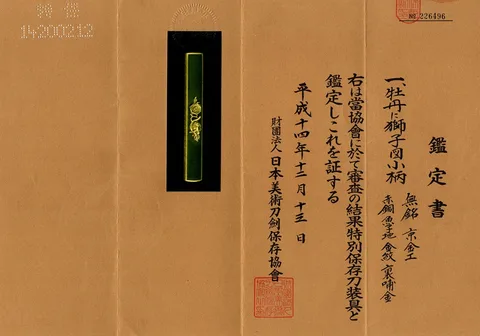 № 226496
鑑定書
一、牡丹に獅子図小柄
無銘 京金工
赤銅魚子地 金紋 裏哺金
右は當協會に於て審査の結果特別保存刀装具と
鑑定しこれを証する
平成十四年十二月十三日
財團法人 日本美術刀劍保存協會
特保
14200212